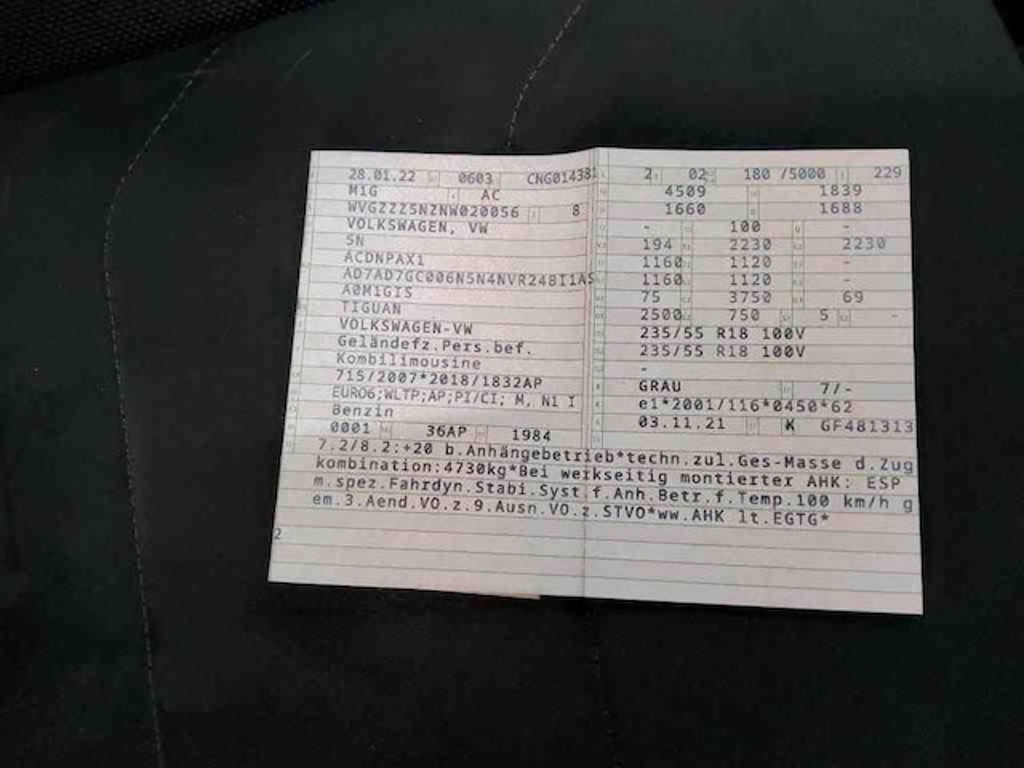 28.01.22 0603 CNG014381
M1G AC
WVGZZZ5NZNW020056 8
VOLKSWAGEN, VW
5N
ACDNPAX1
AD7AD7GC006N5N4NVR248I1AS
A0M1GIS
TIGUAN
VOLKSWAGEN-VW
Geländefz.Pers.bef.
Kombilimousine
715/2007*2018/1832AP
EURO6;WLTP;AP;PI/CI; M, N1 I
Benzin
0001 36AP 1984
2 02 180 /5000 229
4509 1839
1660 1688
- 100 -
194 2230 2230
1160 1120 -
1160 1120 -
75 3750 69
2500 750 5 -
235/55 R18 100V
235/55 R18 100V
-
GRAU 7/-
e1*2001/116*0450*62
03.11.21 K GF481313
7.2/8.2:+20 b.Anhängebetrieb*techn.zul.Ges-Masse d.Zug
kombination:4730kg*Bei werkseitig montierter AHK: ESP
m.spez.Fahrdyn.Stabi.Syst.f.Anh.Betr.f.Temp.100 km/h g
em.3.Aend.VO.z.9.Ausn.VO.z.STVO*ww.AHK lt.EGTG*
2